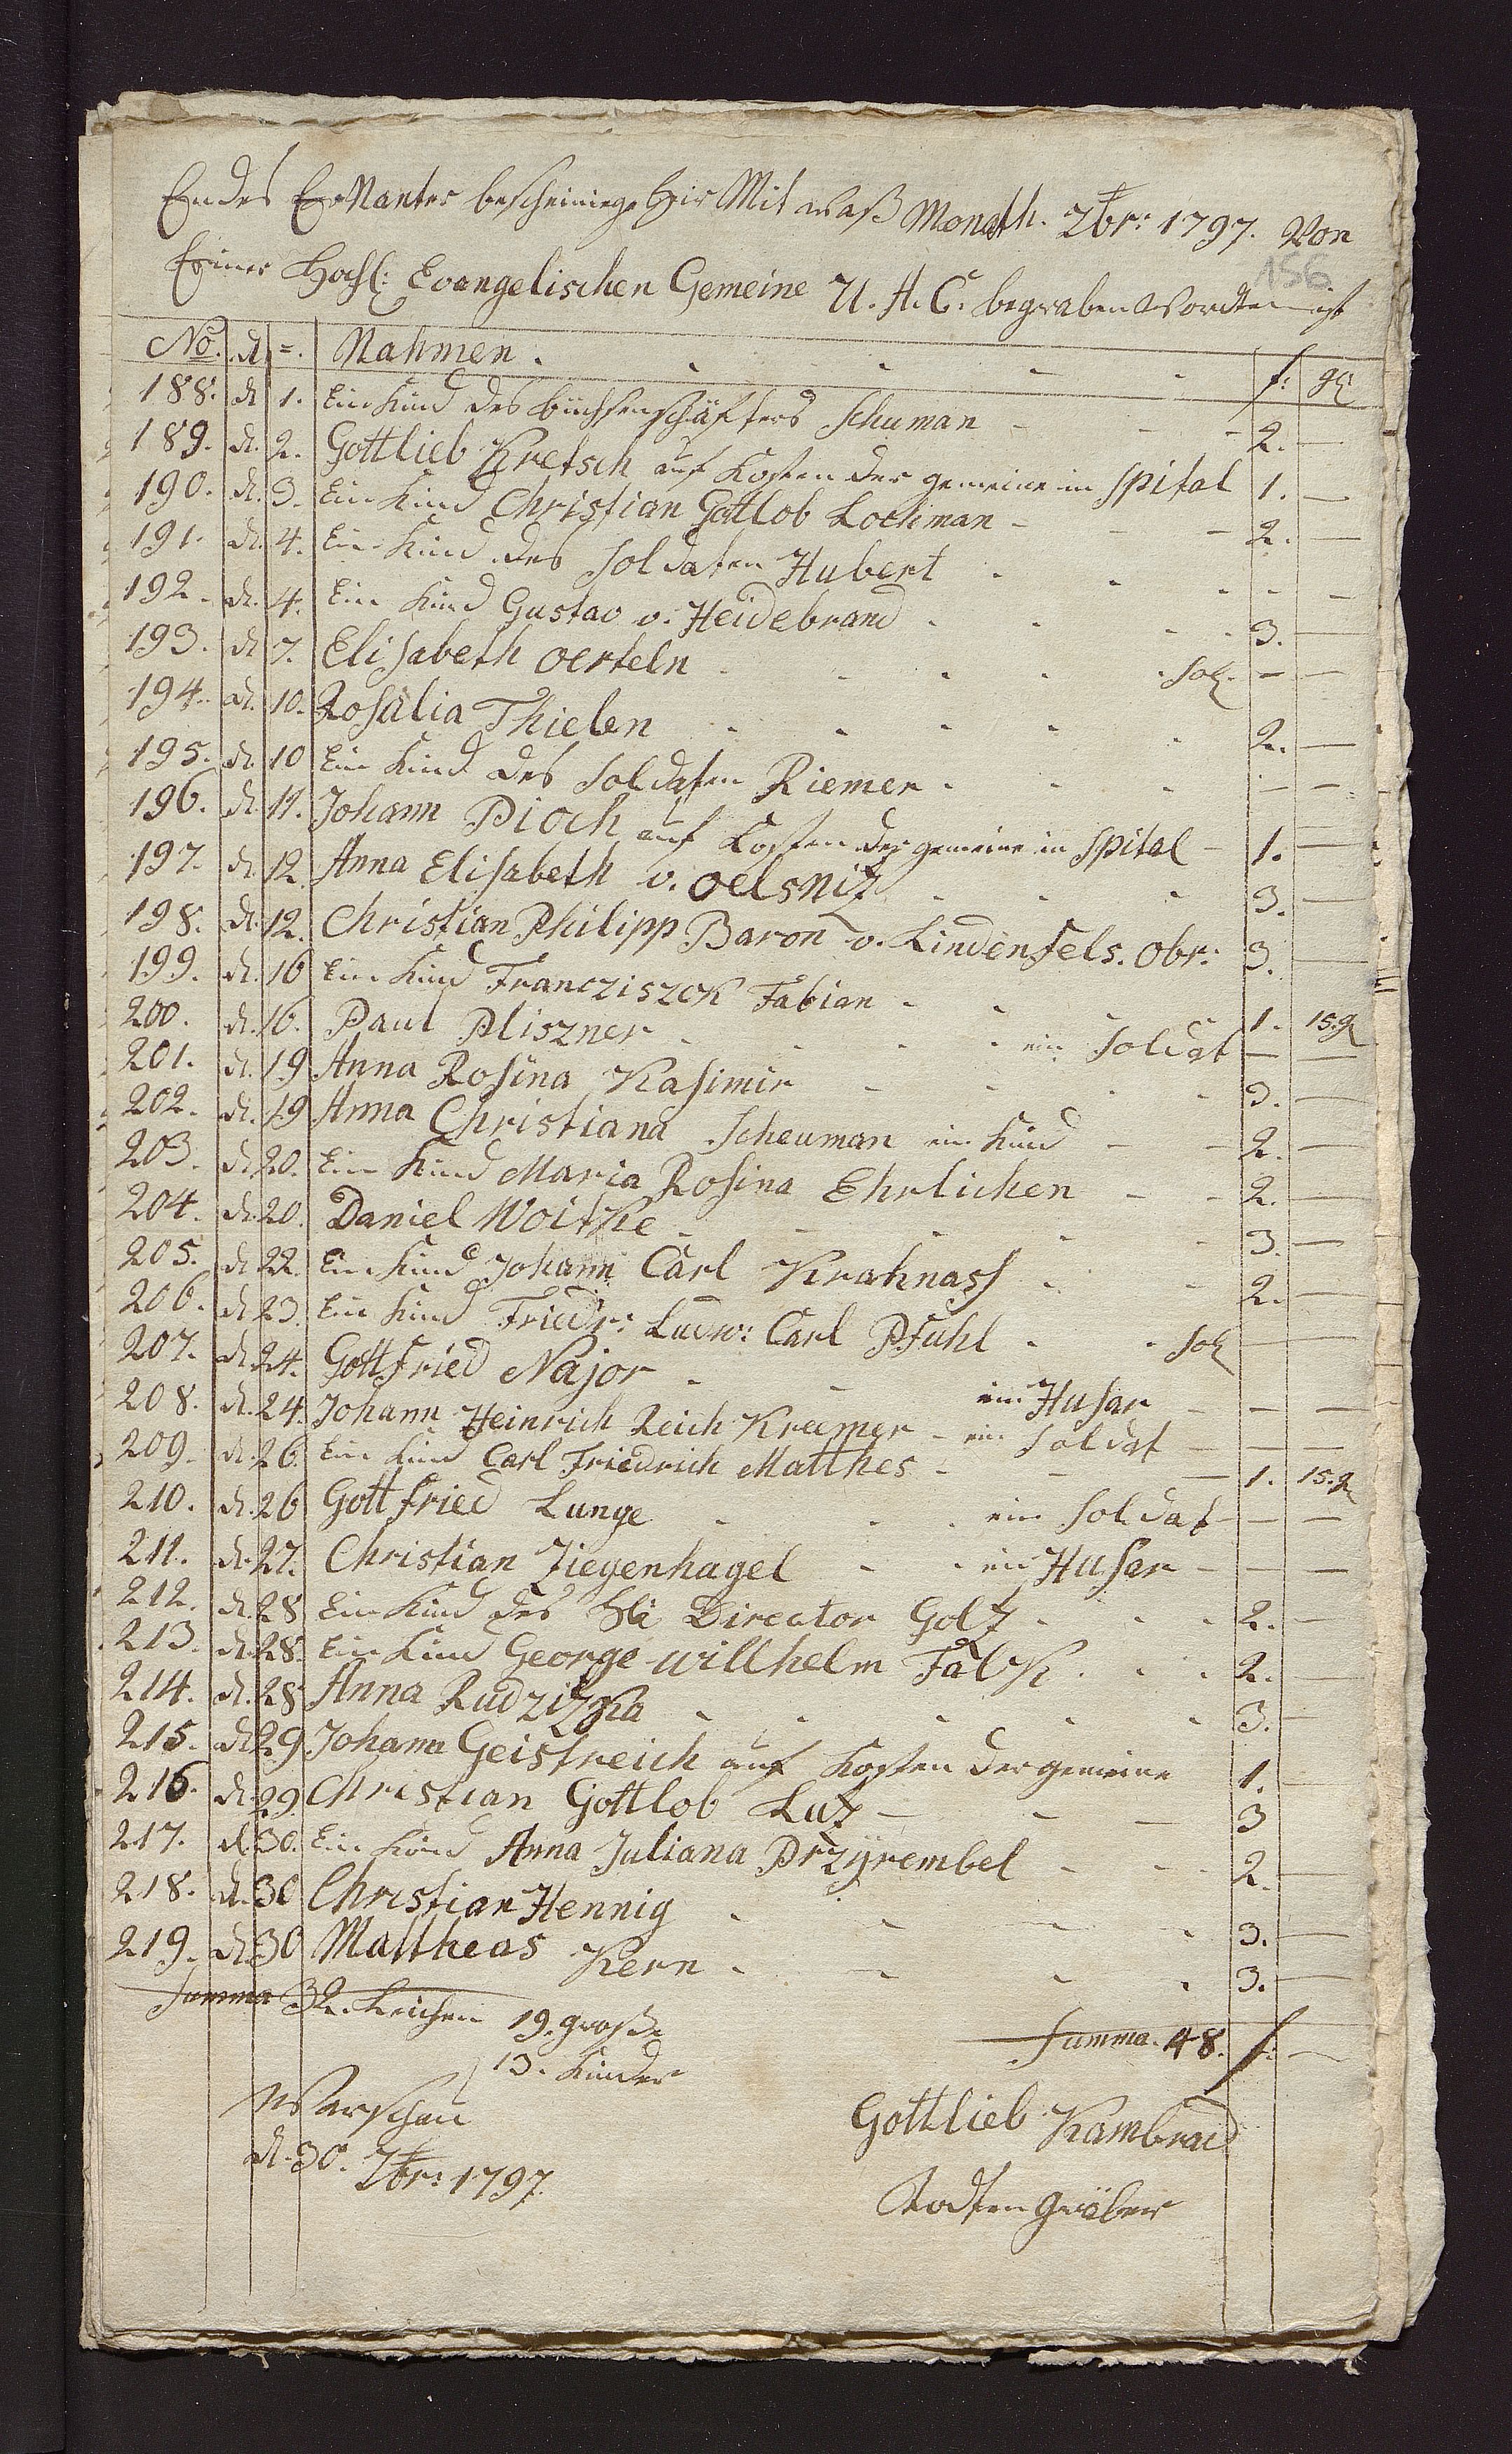 Endes Ernanter bescheinige hir Mit waß Monath. 7br: 1797. Von
Einer Hochl: Evangelischen Gemeine U. A. C. begraben Worden ist
156
No. d. =. Nahmen. f: gl
188. d 1. Ein Kind des büchsenschäfters Schuman - - - 2. —
189. d. 2. Gottlieb Kretsch auf Kosten der gemeine in Spital 1. —
190. d. 3. Ein Kind Christian Gottlob Lochman - - - 2. —
191. d. 4. Ein Kind des Soldaten Hubert - - - - -
192. d. 4. Ein Kind Gustav v. Heidebrand - - - 3. —
193. d 7. Elisabeth Oerteln - - - - Sol. — —
194. d. 10. Rosalia Thielen - - - - - 2. —
195. d. 10 Ein Kind des Soldaten Riemer - - - — —
196. d. 11. Johann Pioch auf Kosten der gemeine in Spital - 1. —
197. d. 12. Anna Elisabeth v. Oelsnitz - - - 3. —
198. d. 12. Christian Philipp Baron v. Lindenfels. Obr: 3. —
199. d. 16 Ein Kind Francziszek Fabian - - - 1. 15. g
200. d. 16. Paul Pliszner - - - - ein Soldat — —
201. d. 19 Anna Rosina Kasimir - - - - 3. —
202. d. 19 Anna Christiana Scheuman ein Kind - - 2. —
203. d. 20. Ein Kind Maria Rosina Ehrlichen - - 2. —
204. d. 20. Daniel Woitke - - - - - 3. —
205. d 22. Ein Kind Johann Carl Krahnass - - 2. —
206. d 23. Ein Kind Friedr: Ludw: Carl Pfuhl - - Sol — —
207. d. 24. Gottfried Major - - ein Husar - — —
208. d. 24. Johann Heinrich Reich Kreemer - ein Soldat - — —
209. d. 26. Ein Kind Carl Friedrich Matthes - - — 1. 15. g
210. d. 26 Gottfried Lunge - - - ein Soldat - — —
211. d. 27. Christian Ziegenhagel - - ein Husar - — —
212. d. 28 Ein Kind des Director Goltz - - - 2. —
213. d. 28. Ein Kind George Willhelm Falck - - - 2. —
214. d. 28 Anna Rudzitzka - - - - - 3. —
215. d 29 Johann Geistreich auf Kosten der gemeine 1. —
216. d. 29 Christian Gottlob Lutz — - — 3
217. d. 30. Ein Kind Anna Juliana Przyrembel - - - 2. —
218. d. 30 Christian Hennig - - - - 3. —
219. d. 30 Mattheas Kern - - - - 3. —
Summa 32. Leichen 19. große
Summa. 48. f: —
13. Kinder
Warschau
Gottlieb Kambrad
d. 30. 7br: 1797.
Todten gräber